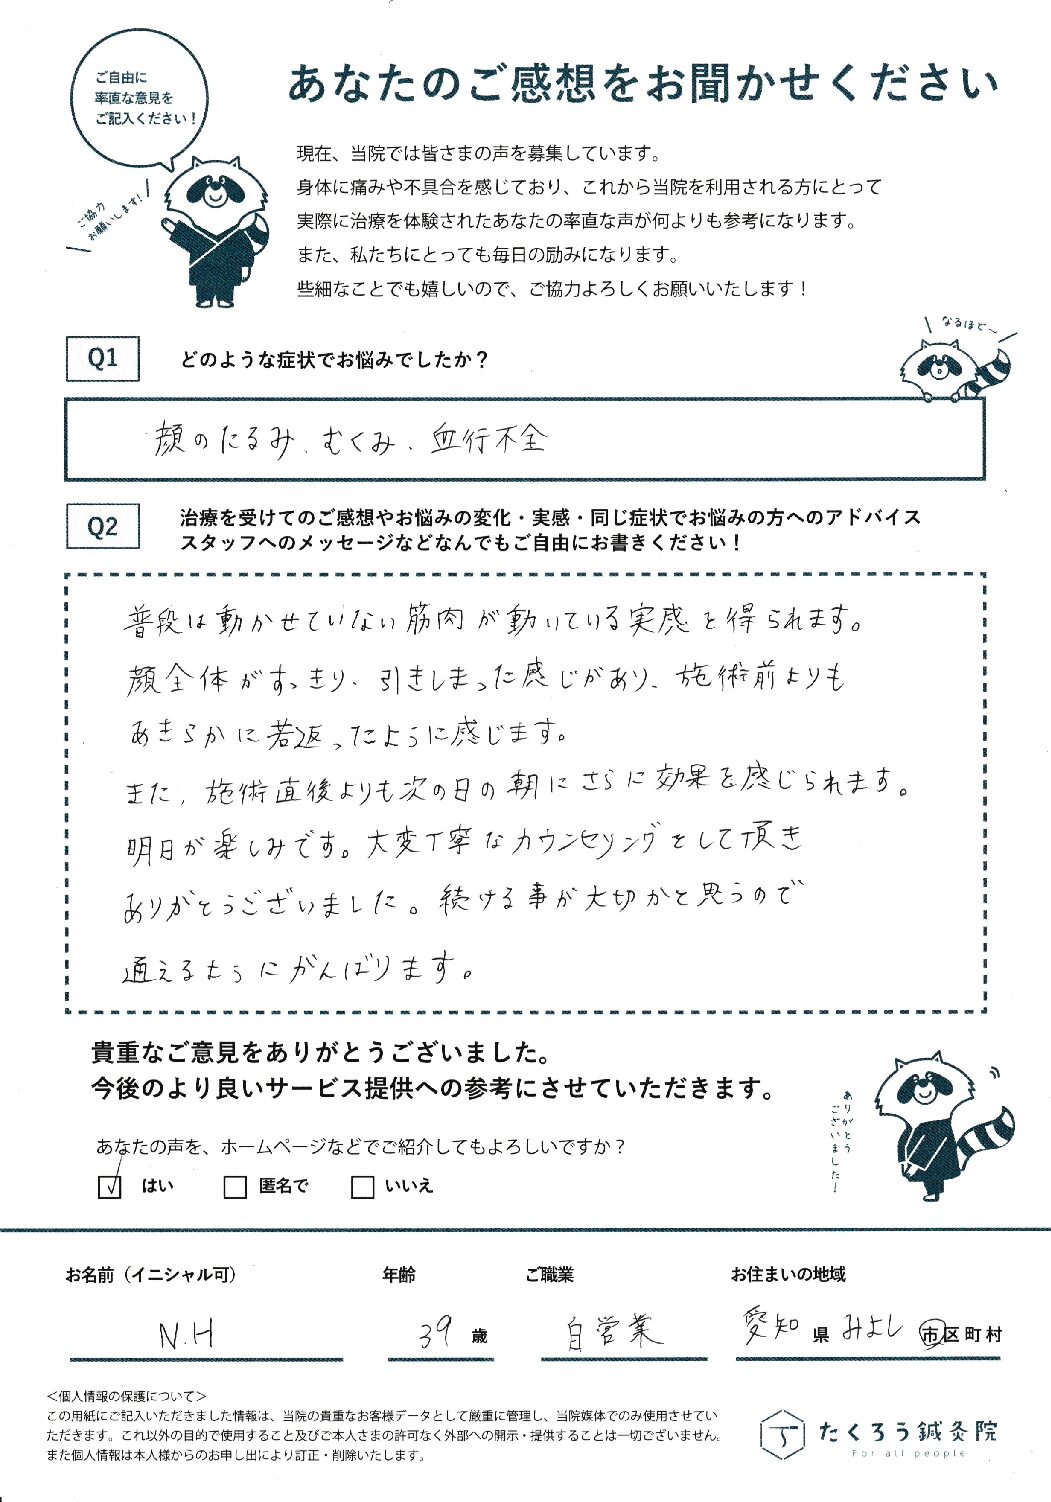 ご自由に
率直な意見を
ご記入ください！
あなたのご感想をお聞かせください
現在、当院では皆さまの声を募集しています。
身体に痛みや不具合を感じており、これから当院を利用される方にとって
実際に治療を体験されたあなたの率直な声が何よりも参考になります。
また、私たちにとっても毎日の励みになります。
些細なことでも嬉しいので、ご協力よろしくお願いいたします！
ご協力
お願いします！
なるほど〜
Q1 どのような症状でお悩みでしたか？
顔のたるみ、むくみ、血行不全
Q2 治療を受けてのご感想やお悩みの変化・実感・同じ症状でお悩みの方へのアドバイス
スタッフへのメッセージなどなんでもご自由にお書きください！
普段は動かせていない筋肉が動いている実感を得られます。
顔全体がすっきり、引きしまった感じがあり、施術前よりも
あきらかに若返ったように感じます。
また、施術直後よりも次の日の朝にさらに効果を感じられます。
明日が楽しみです。大変丁寧なカウンセリングをして頂き
ありがとうございました。続ける事が大切かと思うので
通えるようにがんばります。
貴重なご意見をありがとうございました。
今後のより良いサービス提供への参考にさせていただきます。
ありがとう
ございました！
あなたの声を、ホームページなどでご紹介してもよろしいですか？
はい 匿名で いいえ
お名前（イニシャル可） 年齢 ご職業 お住まいの地域
N.H 39 歳 自営業 愛知 県 みよし 市区町村
＜個人情報の保護について＞
この用紙にご記入いただきました情報は、当院の貴重なお客様データとして厳重に管理し、当院媒体でのみ使用させてい
ただきます。これ以外の目的で使用すること及びご本人さまの許可なく外部への開示・提供することは一切ございません。
また個人情報は本人様からのお申し出により訂正・削除いたします。
たくろう鍼灸院
For all people